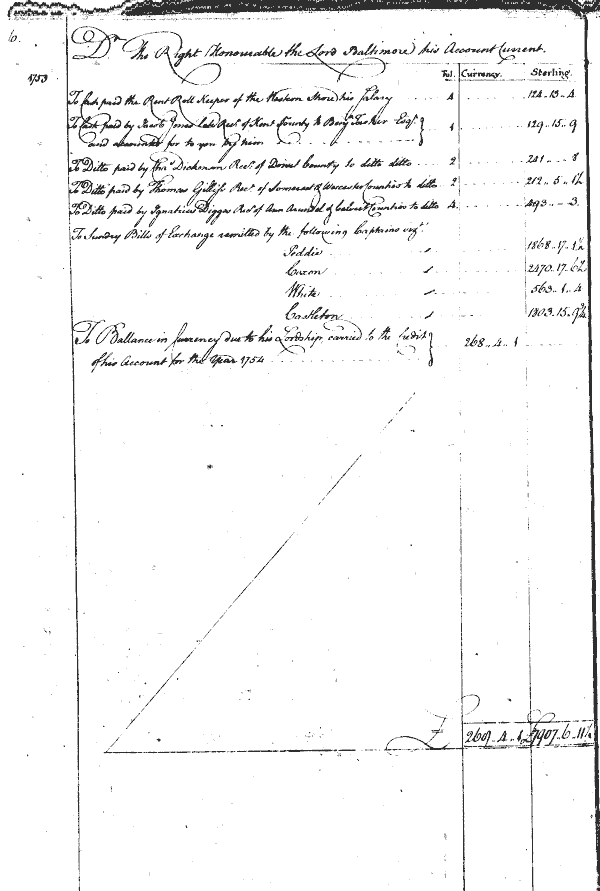 6.
Dr. The Right Honourable the Lord Baltimore his Account Current.
1753
Fol. Currency. Sterling.
To Cash paid the Rent Roll Keeper of the Western Shore his Salary 4 124..13..4
To Cash paid by Jacob Jones late Recr. of Kent County to Benj. Tasker Esqr. } 1 129..15..9
and accounted for to you by him
To Ditto paid by Thos. Dickenson Recr. of Dorset County to ditto ditto 2 241.. ..8
To Ditto paid by Thomas Gillis Recr. of Somerset & Worcester Counties to ditto 2 212..5..1½
To Ditto paid by Ignatius Digges Recr. of Ann Arundel & Calvert Counties to ditto 4 493.. ..3.
To Sundry Bills of Exchange remitted by the following Captains vizt.
Peddie 1868..17..1½
Coxon 2470..17..6½
White 563..1..4
Castleton 1803..15..9¾
To Ballance in Currency due to his Lordship, carried to the Credit } 268..4..1
of his Account for the Year 1754
£ 268..4..1 £7907..6..11½